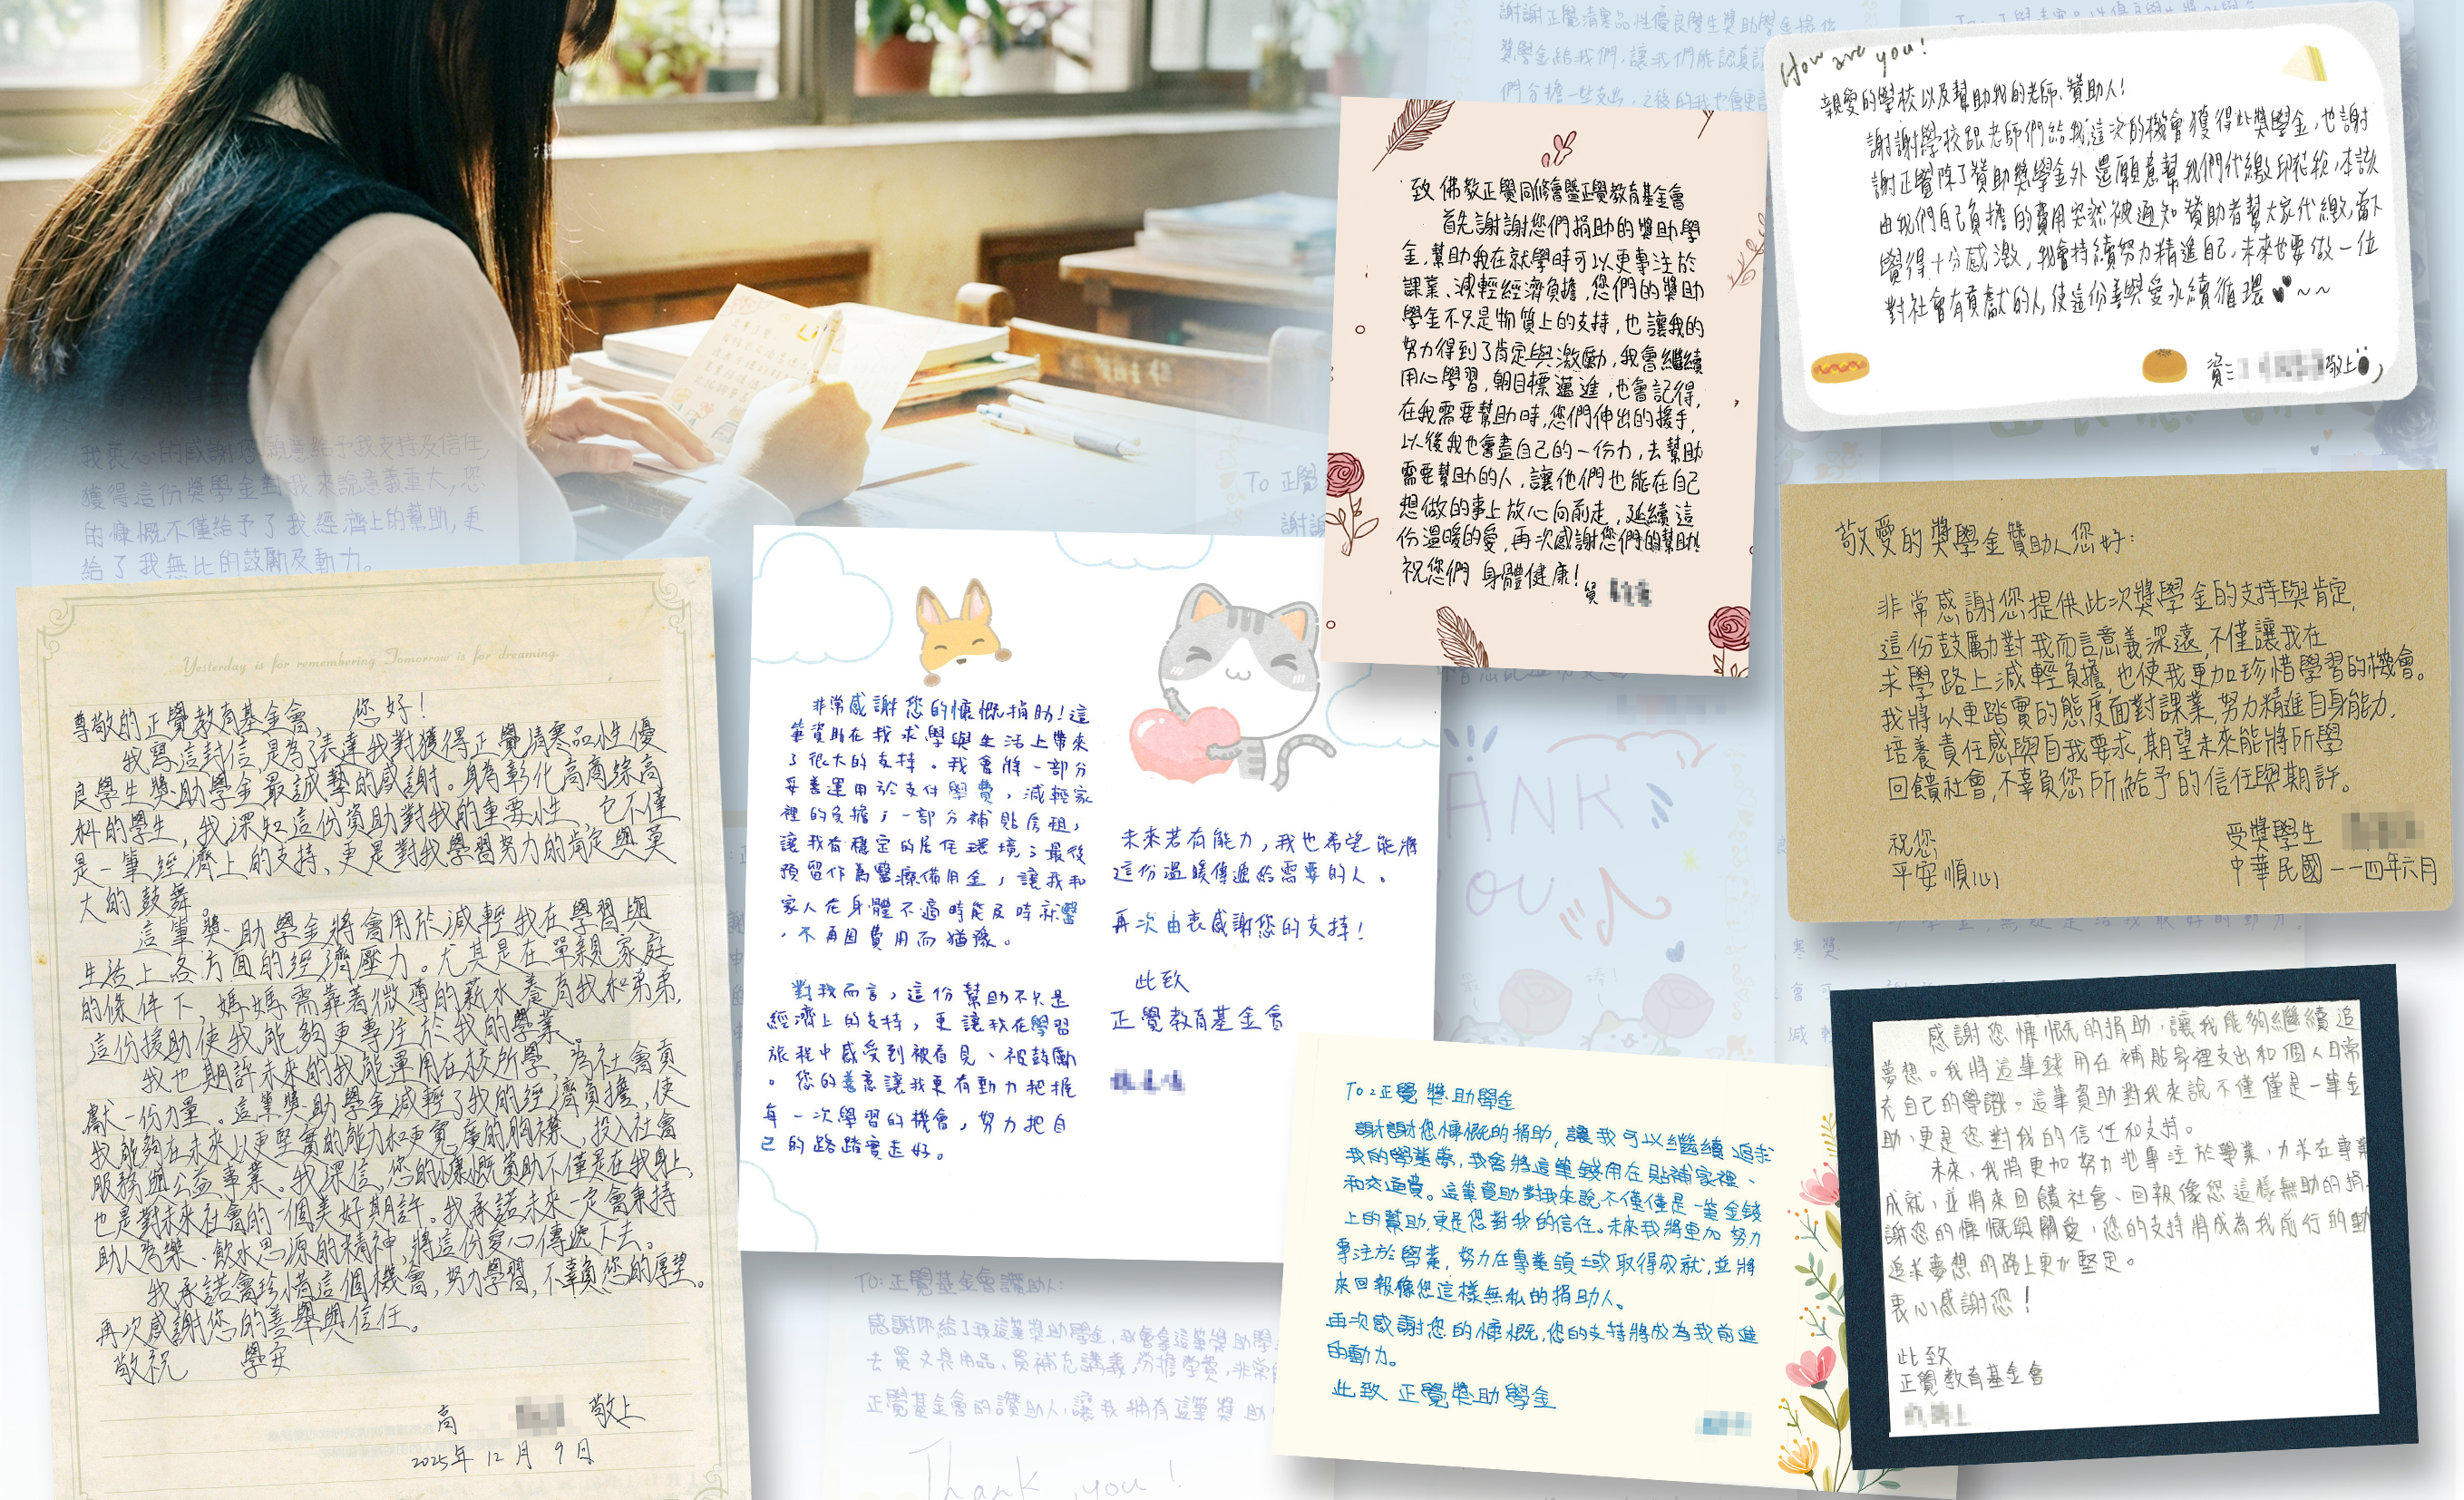 How are you!
親愛的學校以及幫助我的老師、贊助人!
謝謝學校跟老師們給我這次的機會獲得此獎學金,也謝
謝正覺除了贊助獎學金外還願意幫我們代繳印花稅,本該
由我們自己負擔的費用突然被通知贊助者幫大家代繳,當下
覺得十分感激,我會持續努力精進自己,未來也要做一位
對社會有貢獻的人,使這份善與愛永續循環 ~~
資三 敬上
致 佛教正覺同修會暨正覺教育基金會
首先謝謝您們捐助的獎助學
金,幫助我在就學時可以更專注於
課業、減輕經濟負擔,您們的獎助
學金不只是物質上的支持,也讓我的
努力得到了肯定與激勵,我會繼續
用心學習,朝目標邁進,也會記得,
在我需要幫助時,您們伸出的援手,
以後我也會盡自己的一份力,去幫助
需要幫助的人,讓他們也能在自己
想做的事上放心向前走,延續這
份溫暖的愛,再次感謝您們的幫助!
祝您們 身體健康!
敬愛的獎學金贊助人您好:
非常感謝您提供此次獎學金的支持與肯定,
這份鼓勵對我而言意義深遠,不僅讓我在
求學路上減輕負擔,也使我更加珍惜學習的機會。
我將以更踏實的態度面對課業,努力精進自身能力,
培養責任感與自我要求,期望未來能將所學
回饋社會,不辜負您所給予的信任與期許。
祝您
平安順心
受獎學生
中華民國一一四年六月
我衷心的感謝您願意給予我支持及信任,
獲得這份獎學金對我來說意義重大,您
的慷慨不僅給予了我經濟上的幫助,更
給了我無比的鼓勵及動力。
Yesterday is for remembering Tomorrow is for dreaming.
尊敬的正覺教育基金會, 您好!
我寫這封信,是為了表達我對獲得正覺清寒品性優
良學生獎助學金最誠摯的感謝。身為彰化高商綜高
科的學生,我深知這份資助對我的重要性,它不僅
是一筆經濟上的支持、更是對我學習努力的肯定與莫
大的鼓舞。
這筆獎助學金將會用於減輕我在學習與
生活上各方面的經濟壓力。尤其是在單親家庭
的條件下,媽媽需靠著微薄的薪水養育我和弟弟,
這份援助使我能夠更專注於我的學業。
我也期許未來的我能運用在校所學,為社會貢
獻一份力量。這筆獎助學金減輕了我的經濟負擔,使
我能夠在未來以更堅實的能力和更寬廣的胸襟,投入社會
服務與公益事業。我深信,您的慷慨資助不僅是在我身上,
也是對未來社會的一個美好期許。我承諾未來一定會秉持
助人為樂、飲水思源的精神,將這份愛心傳遞下去。
我承諾會珍惜這個機會,努力學習,不辜負您的厚望。
再次感謝您的善舉與信任。
敬祝 學安
高 敬上
2025年 12 月 9日
非常感謝您的慷慨捐助!這
筆資助在我求學與生活上帶來
了很大的支持。我會將一部分
妥善運用於支付學費,減輕家
裡的負擔;一部分補貼房租,
讓我有穩定的居住環境;最後
預留作為醫療備用金,讓我和
家人在身體不適時能及時就醫
,不再因費用而猶豫。
對我而言,這份幫助不只是
經濟上的支持,更讓我在學習
旅程中感受到被看見、被鼓勵
。您的善意讓我更有動力把握
每一次學習的機會,努力把自
己的路踏實走好。
未來若有能力,我也希望能將
這份溫暖傳遞給需要的人。
再次由衷感謝您的支持!
此致
正覺教育基金會
To:正覺獎助學金
謝謝您慷慨的捐助,讓我可以繼續追求
我的學業夢,我會將這筆錢用在貼補家裡、
和交通費。這筆資助對我來說不僅僅是一筆金錢
上的幫助,更是您對我的信任。未來我將更加努力
專注於學業,努力在專業領域取得成就,並將
來回報像您這樣無私的捐助人。
再次感謝您的慷慨,您的支持將成為我前進
的動力。
此致 正覺獎助學金
感謝您慷慨的捐助,讓我能夠繼續追
夢想。我將這筆錢用在補貼家裡支出和個人日常
充自己的學識。這筆資助對我來說不僅僅是一筆金
助,更是您對我的信任和支持。
未來,我將更加努力地專注於學業,力求在專業
成就,並將來回饋社會、回報像您這樣無助的捐
謝您的慷慨與關愛,您的支持將成為我前行的動
追求夢想的路上更加堅定。
衷心感謝您!
此致
正覺教育基金會
To:正覺基金會讚助人:
感謝你給了我這筆獎助學金,我會拿這筆獎助學
去買文具用品、買補充講義,分擔學費,非常
正覺基金會的讚助人,讓我擁有這筆獎助
Thank you!